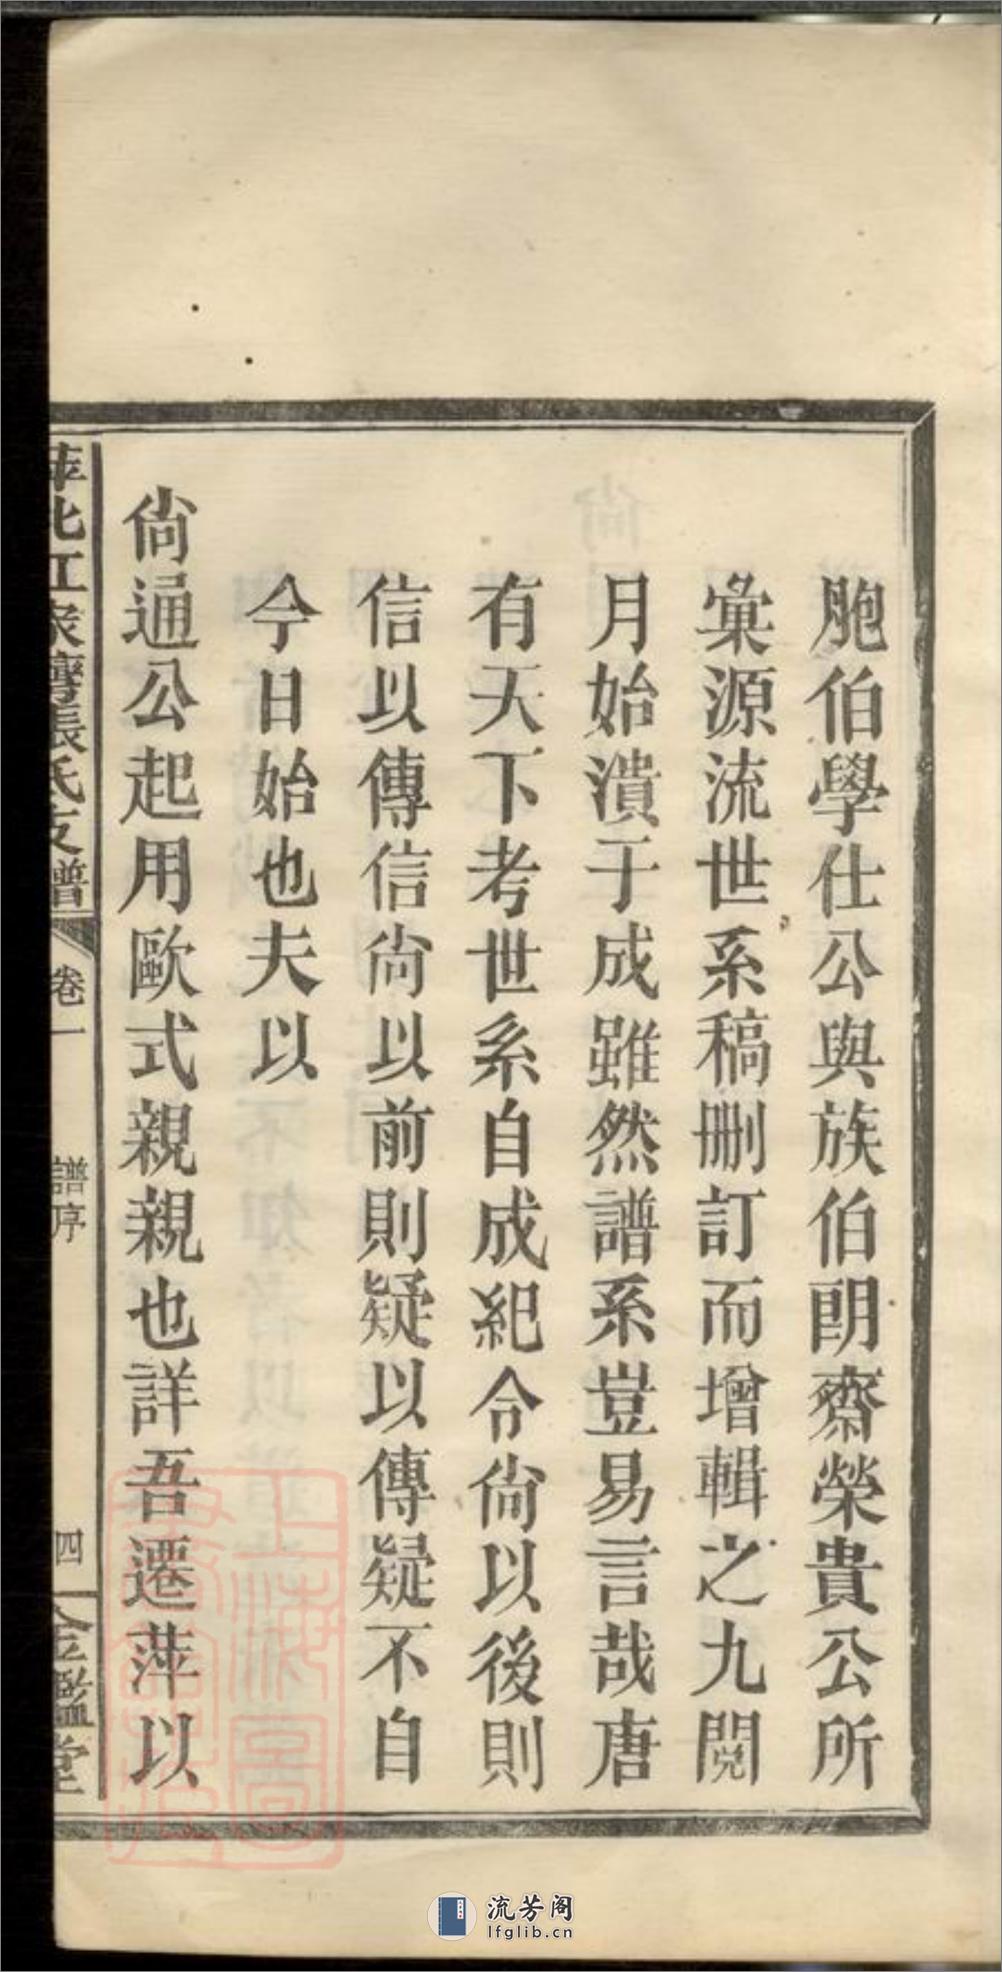 胞伯學仕公與族伯朗齋榮貴公所
彙源流世系稿刪訂而增輯之九閱
月始潰于成雖然譜系豈易言哉唐
有天下考世系自成紀令尙以後則
信以傳信尙以前則疑以傳疑不自
今日始也夫以
尙通公起用歐式親親也詳吾遷萍以
萍北江家灣張氏支譜
卷一
譜序
四
金鑑堂
上海圖書館藏
流芳阁
lfglib.cn